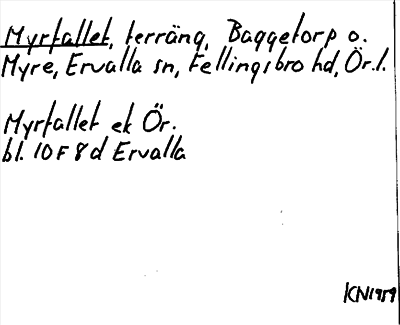 Myrfallet, terräng, Baggetorp o.
Myre, Ervalla sn, Fellingsbro hd, Ör.l.
Myrfallet ek Ör.
bl. 10F8d Ervalla
KN1959